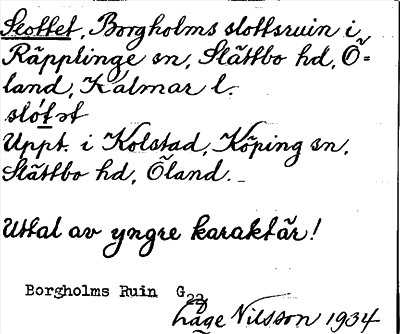 Slottet, Borgholms slottsruin i
Räpplinge sn, Slättbo hd, Ö=
land, Kalmar l.
slót ət
Uppt. i Kolstad, Köping sn,
Slättbo hd, Öland.
Uttal av yngre karaktär!
Borgholms Ruin G 22
Åge Nilsson 1934